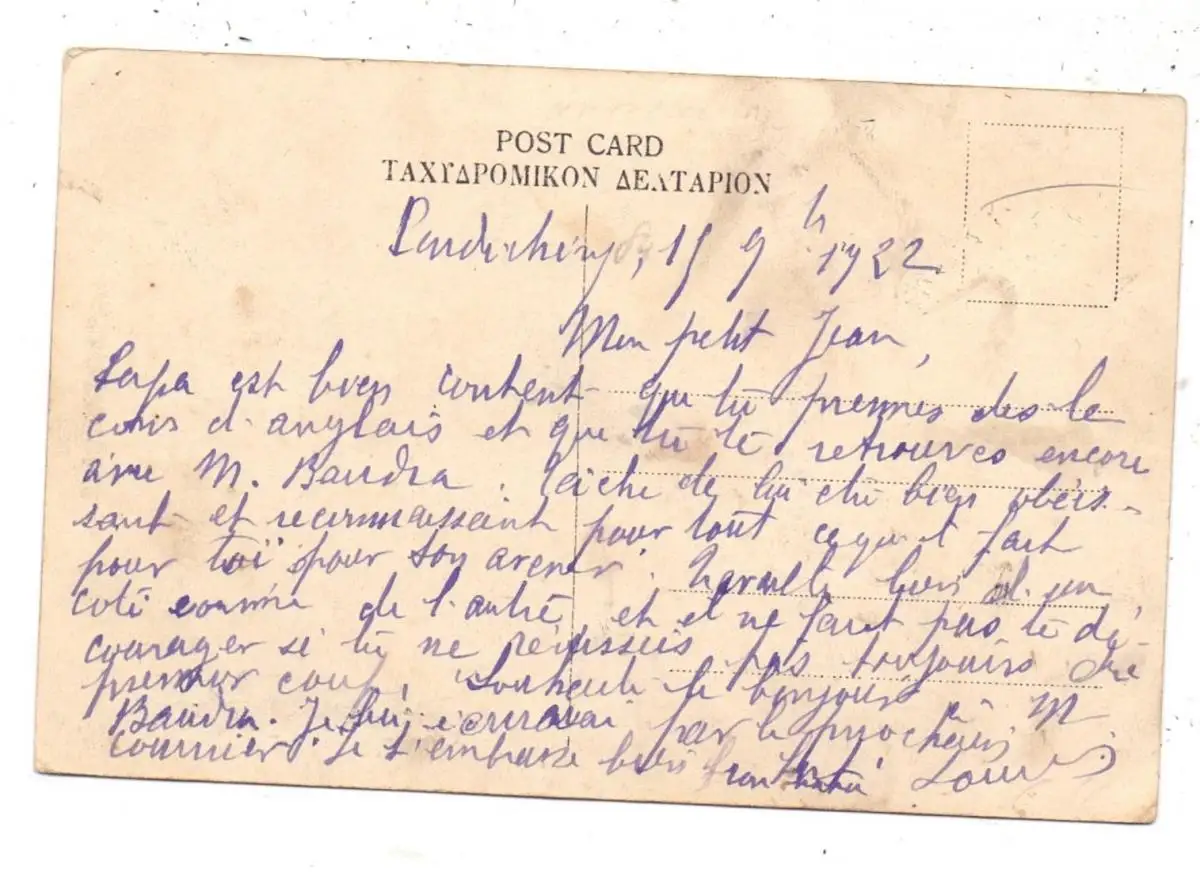 POST CARD
ΤΑΧΥΔΡΟΜΙΚΟΝ ΔΕΛΤΑΡΙΟΝ
Pondichéry, 15 9 1922
Mon petit Jean,
Papa est bien content que tu prennes des le
çons d'anglais et que tu te retrouves encore
avec M. Baudra. Tâche de lui être bien obéis-
sant et reconnaissant pour tout ce qu'il fait
pour toi pour ton avenir. Travaille bien d'un
coté comme de l'autre et il ne faut pas te dé-
courager si tu ne réussis pas toujours du
premier coup. Souhaite le bonjour à M
Baudra. Je lui écrirai par le prochain
courrier. Je t'embrasse bien
ton Louis